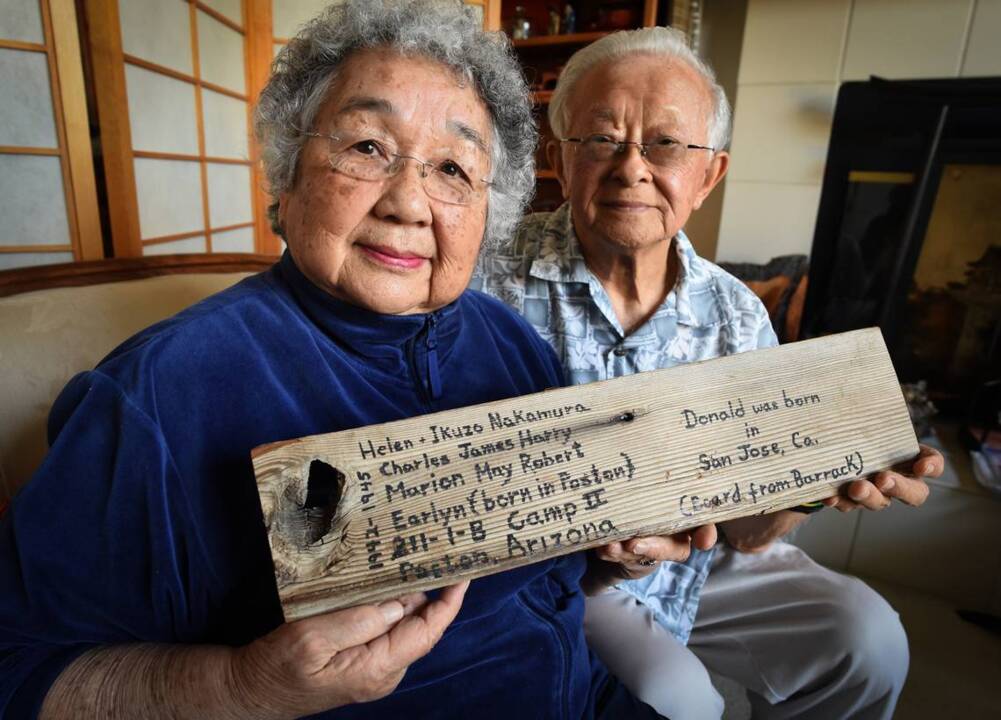 Helen + Ikuzo Nakamura
Charles James Harry
Marion May Robert
Earlyn (born in Poston)
211-1-B Camp II
Poston, Arizona
1942-1945
Donald was born
in
San Jose, Ca.
(Board from Barrack)